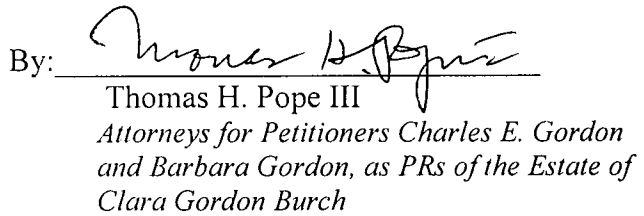 By: Thomas H. Pope III
Thomas H. Pope III
Attorneys for Petitioners Charles E. Gordon
and Barbara Gordon, as PRs of the Estate of
Clara Gordon Burch